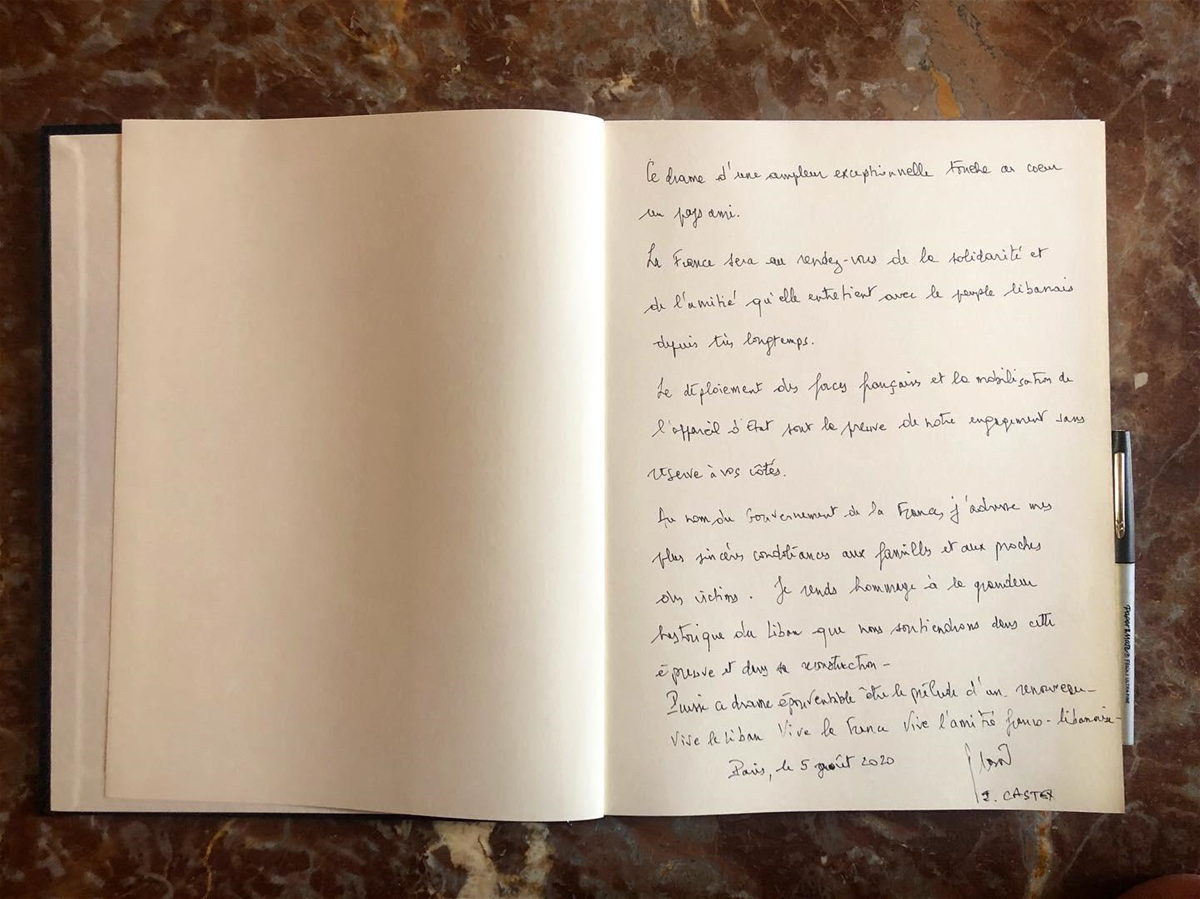 Ce drame d'une ampleur exceptionnelle touche au coeur
un pays ami.
La France sera au rendez-vous de la solidarité et
de l'amitié qu'elle entretient avec le peuple libanais
depuis très longtemps.
Le déploiement des forces françaises et la mobilisation de
l'appareil d'Etat sont la preuve de notre engagement sans
réserve à vos côtés.
Au nom du Gouvernement de la France, j'adresse mes
plus sincères condoléances aux familles et aux proches
des victimes. Je rends hommage à la grandeur
historique du Liban que nous soutiendrons dans cette
épreuve et dans sa reconstruction -
Puisse ce drame épouvantable être le prélude d'un renouveau -
Vive le Liban Vive la France Vive l'amitié franco-libanaise -
Paris, le 5 août 2020
J. CASTEX